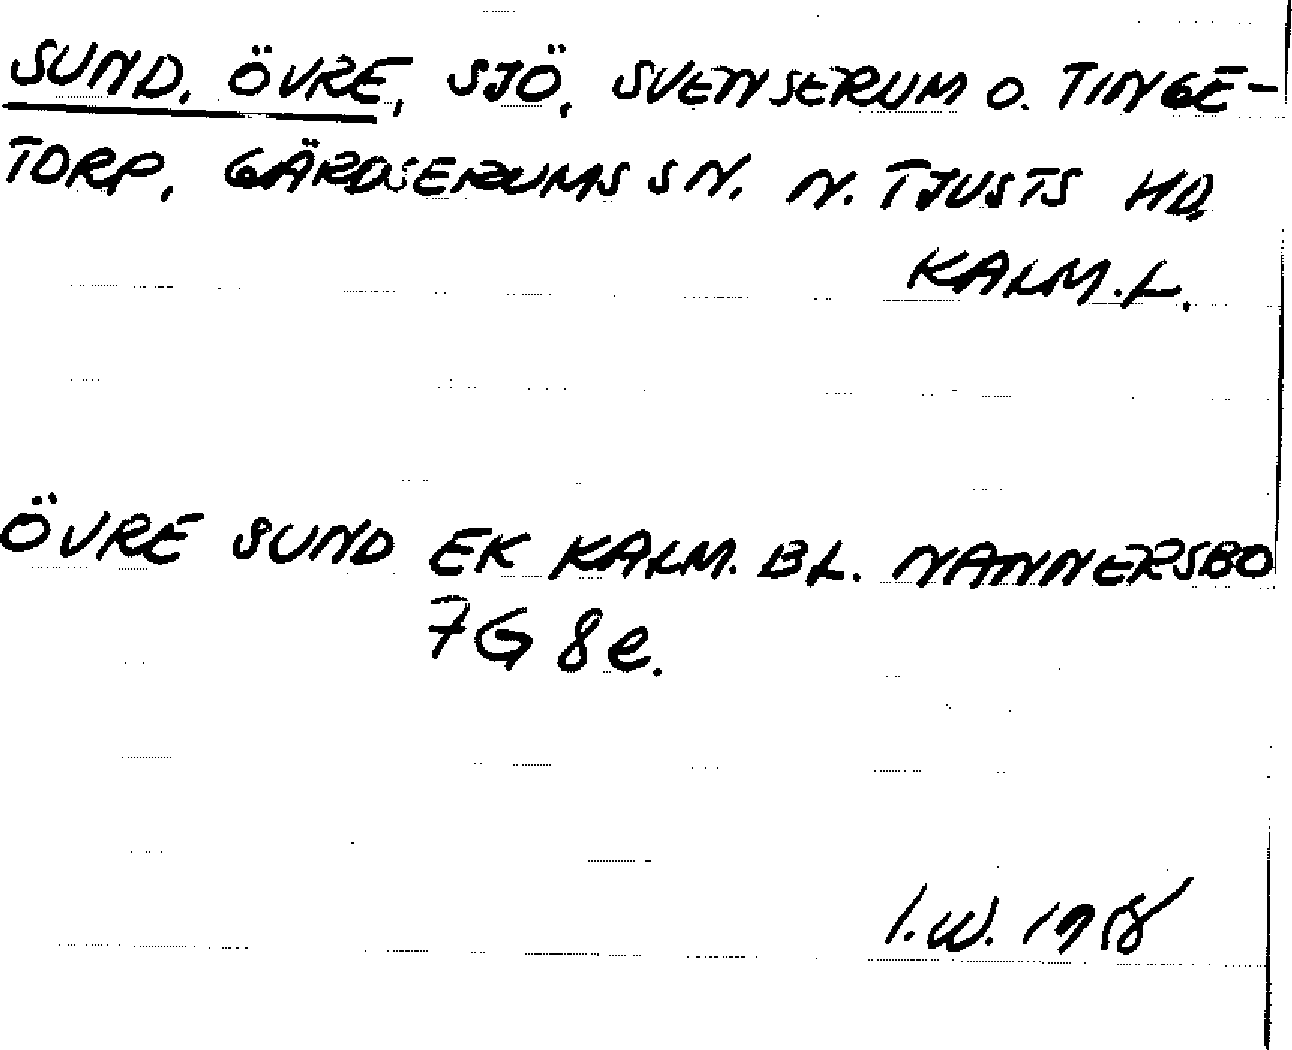 SUND, ÖVRE, SJÖ, SVENSERUM O. TINGE-
TORP, GÄRDSERUMS SN. N. TJUSTS HD,
KALM.L.
ÖVRE SUND EK KALM. BL. NANNERSBO
7G 8e.
I.W.